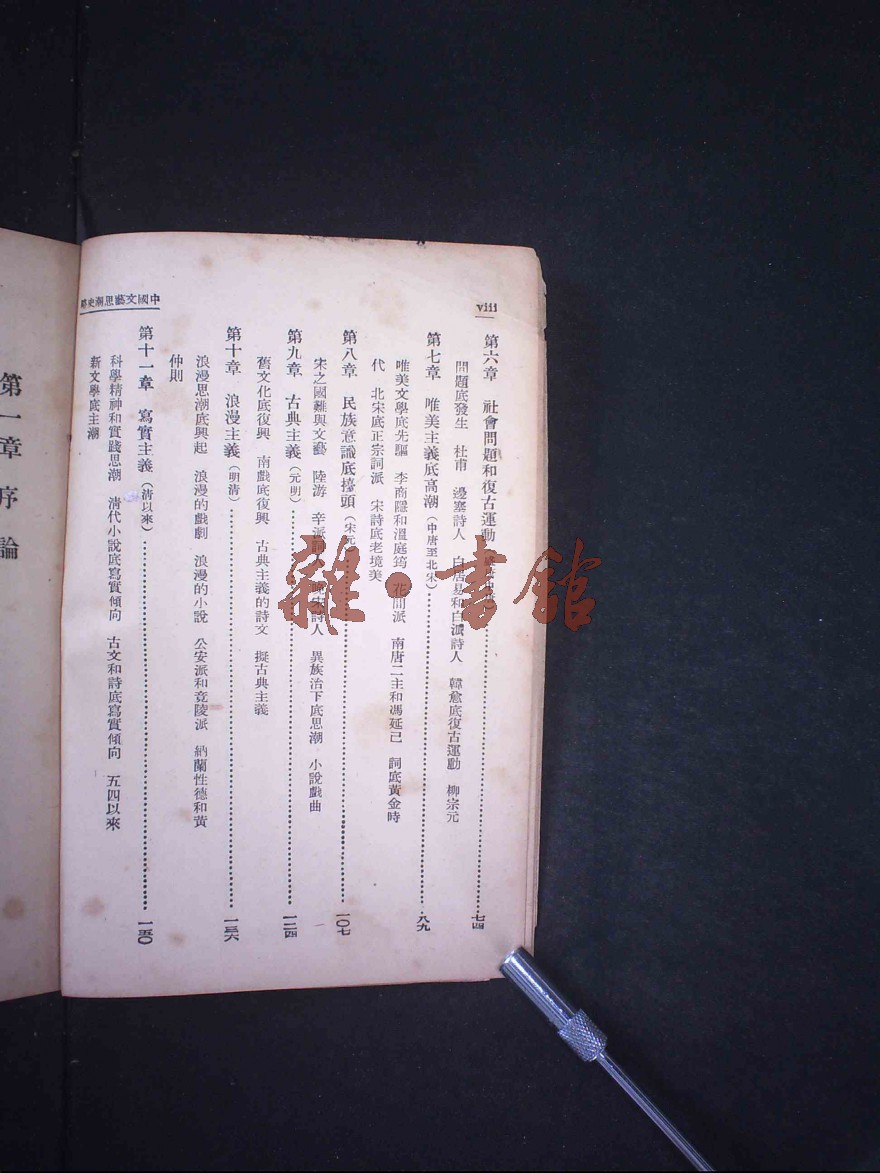 viii
中國文藝思潮史略
第六章 社會問題和復古運動
七四
問題底發生 杜甫 邊塞詩人 白居易和白派詩人 韓愈底復古運動 柳宗元
第七章 唯美主義底高潮(中唐至北宋)
八九
唯美文學底先驅 李商隱和溫庭筠 花間派 南唐二主和馮延己 詞底黃金時
代 北宋底正宗詞派 宋詩底老境美
第八章 民族意識底擡頭(宋元
一〇七
宋之國難與文藝 陸游 辛派詞 晚宋詩人 異族治下底思潮 小說戲曲
第九章 古典主義(元明)
一二四
舊文化底復興 南戲底復興 古典主義的詩文 擬古典主義
第十章 浪漫主義(明清)
一三六
浪漫思潮底興起 浪漫的戲劇 浪漫的小說 公安派和竟陵派 納蘭性德和黃
仲則
第十一章 寫實主義(清以來)
一五〇
科學精神和實踐思潮 清代小說底寫實傾向 古文和詩底寫實傾向 五四以來
新文學底主潮
第一章 序論
雜·書館